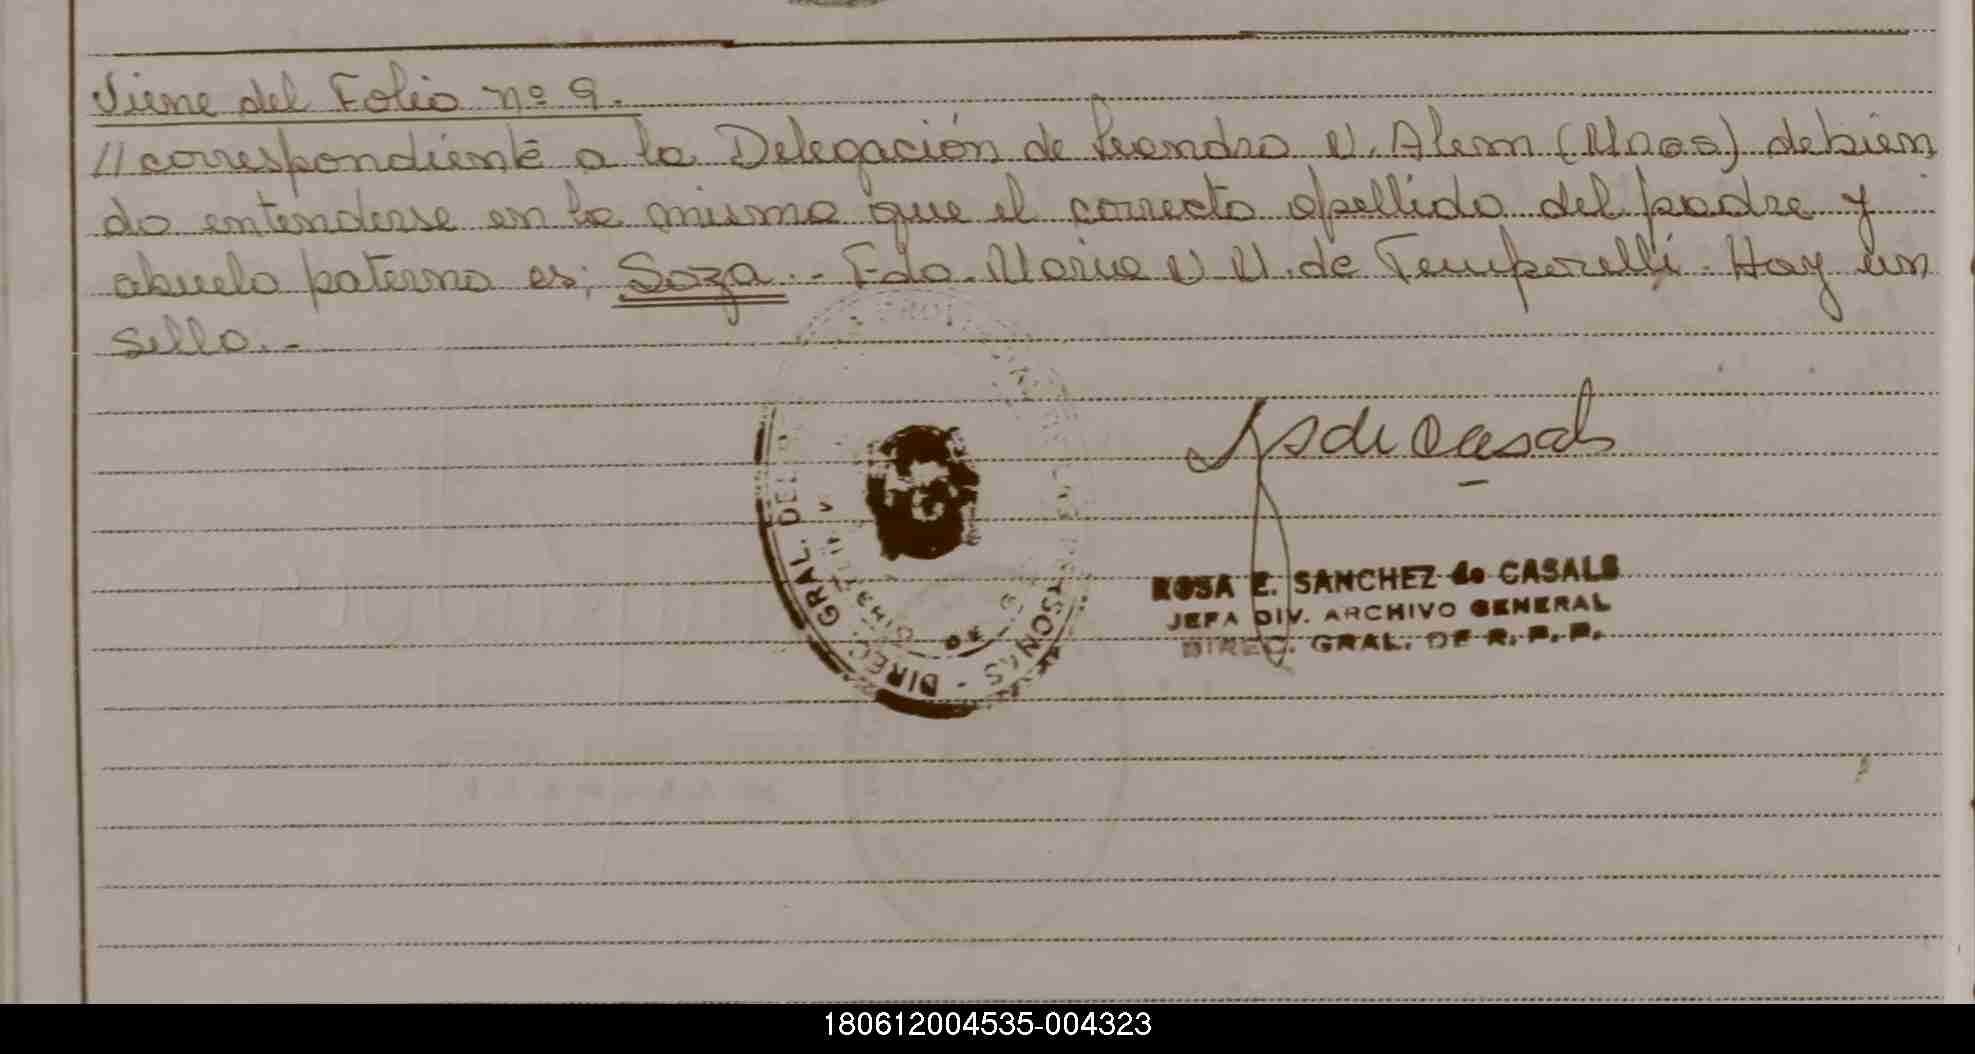 Viene del Folio nº 9.
//correspondiente a la Delegación de Leandro N. Alem (Mnes) debien
do entenderse en la misma que el correcto apellido del padre y
abuelo paterno es; Soza.- Fdo. Maria N. de Temporelli. Hay un
sello.-
RSdeCasals
ROSA E. SANCHEZ de CASALS
JEFA DIV. ARCHIVO GENERAL
DIREC. GRAL. DE R. P. P.
DIREC. GRAL. DEL
180612004535-004323